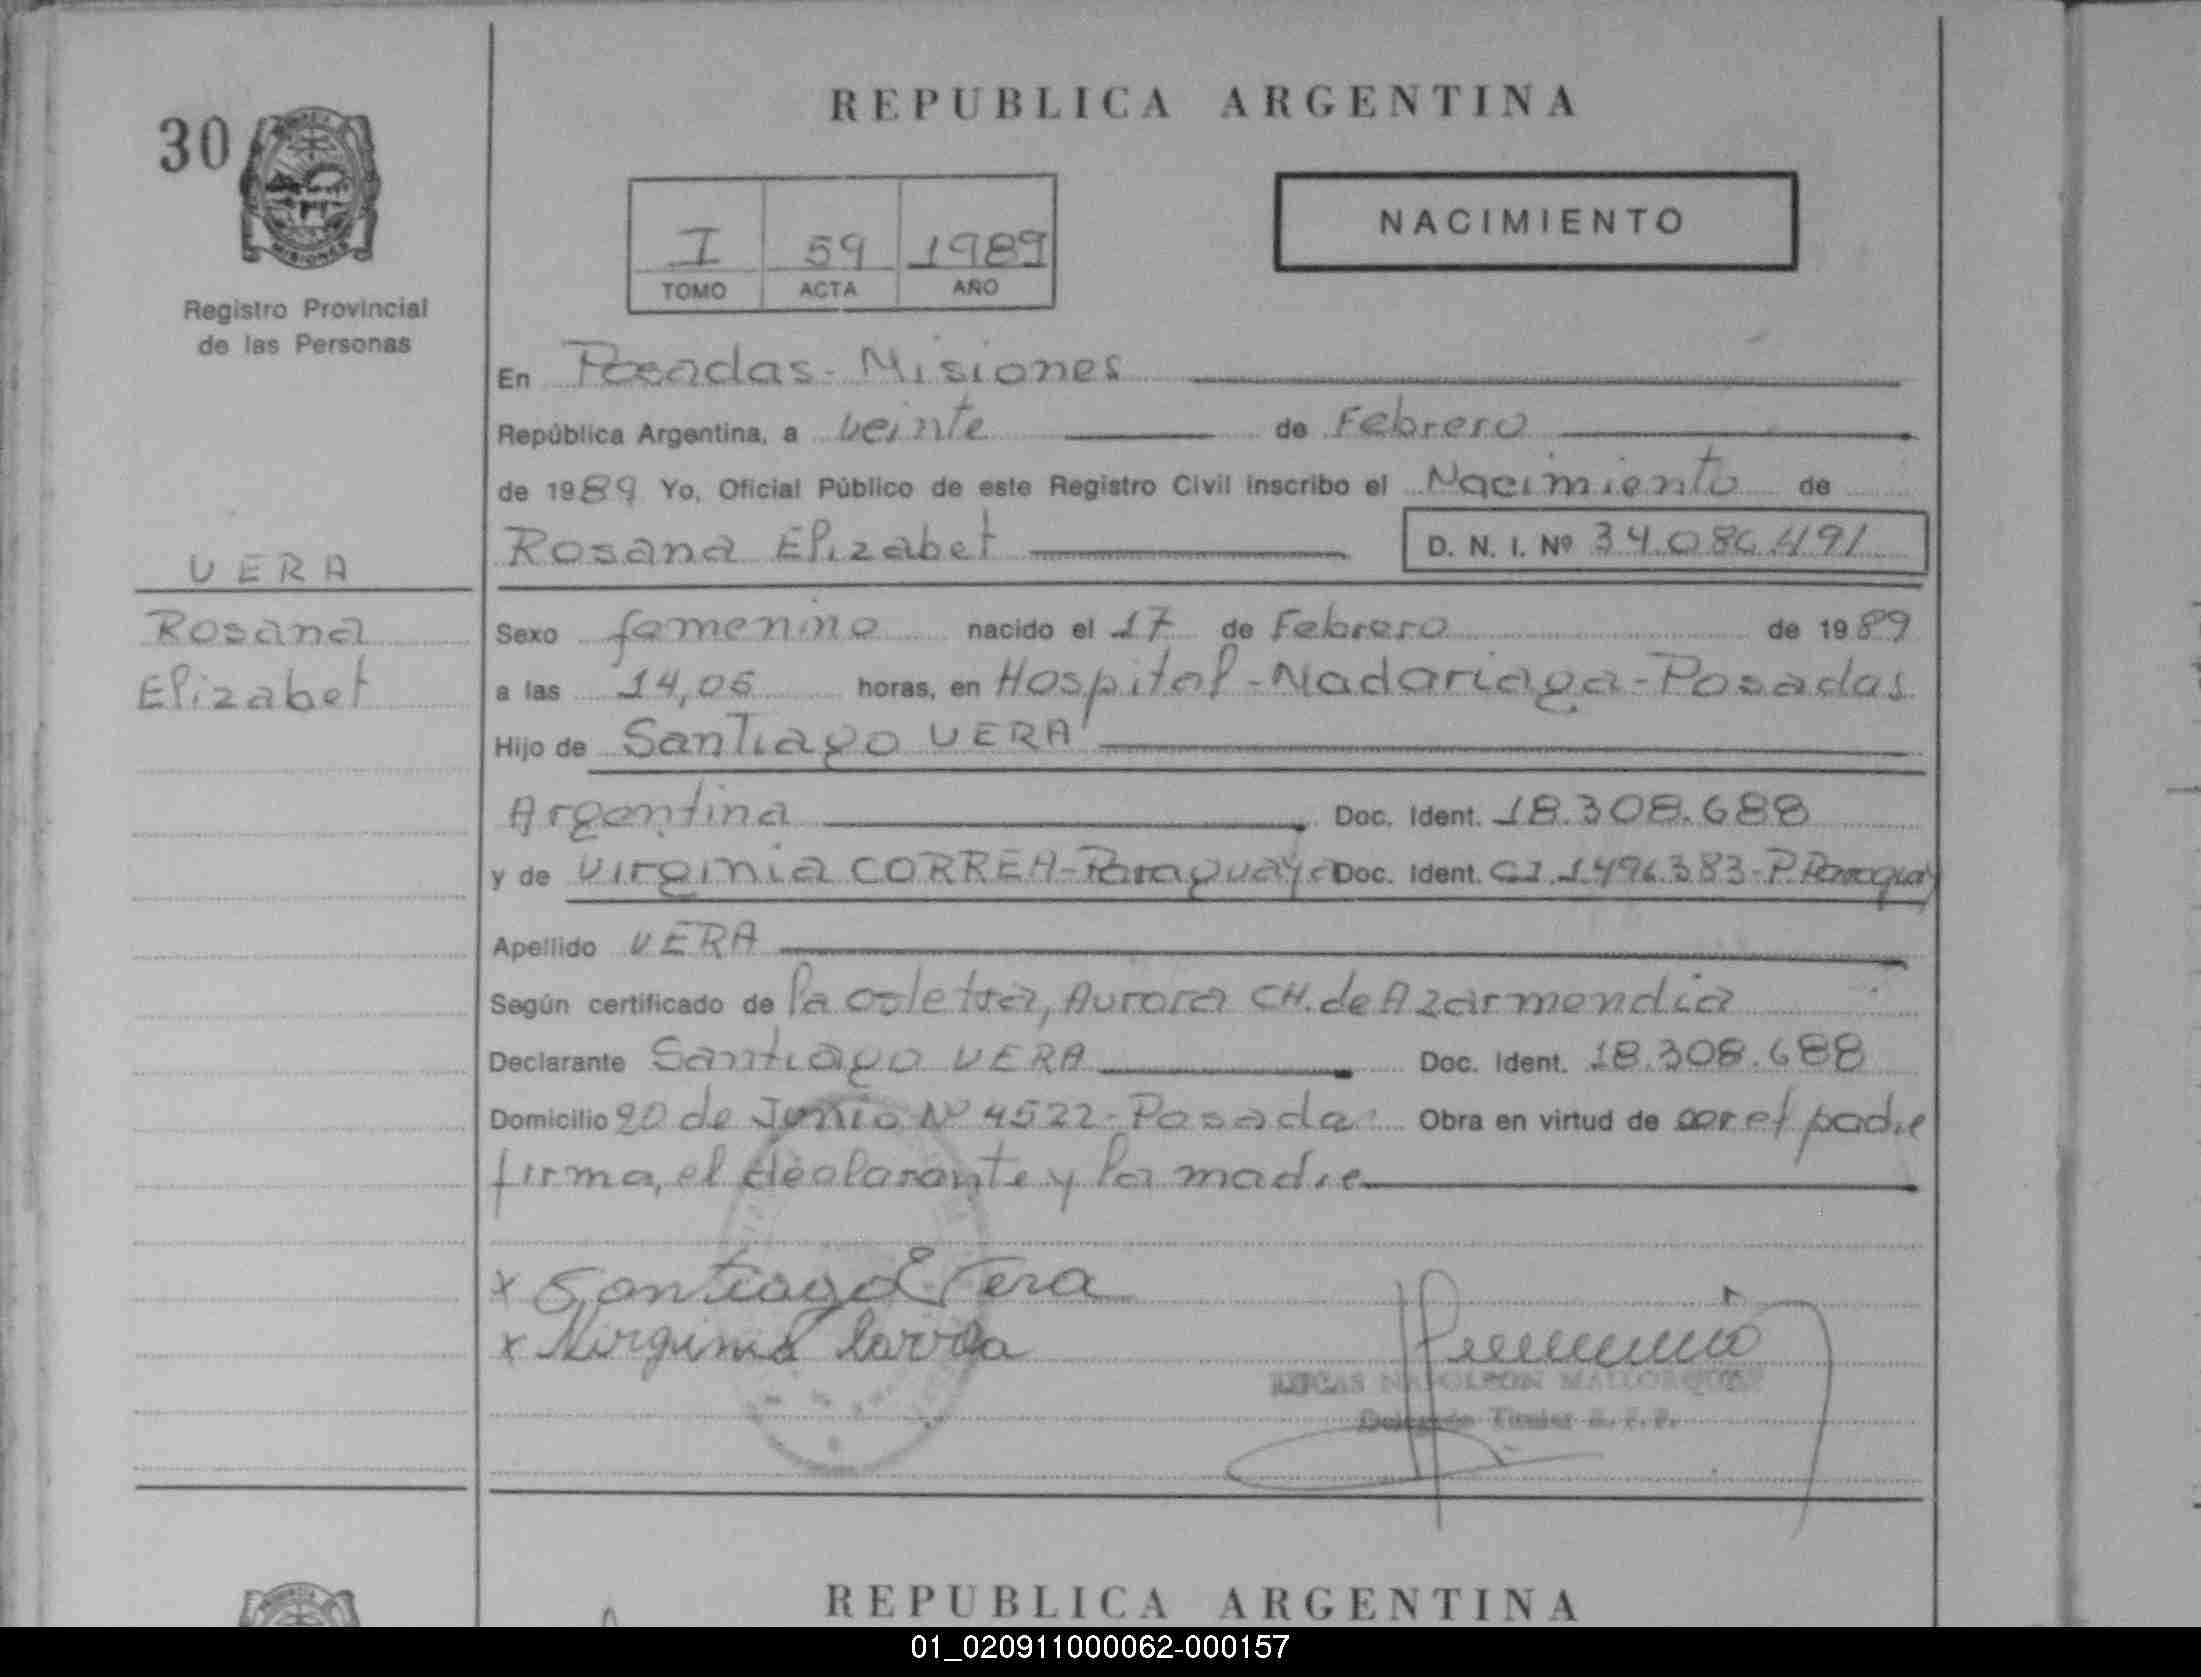 REPUBLICA ARGENTINA
30
I 59 1989
TOMO ACTA AÑO
NACIMIENTO
Registro Provincial
de las Personas
En Posadas - Misiones
República Argentina, a veinte de Febrero
de 1989 Yo, Oficial Público de este Registro Civil inscribo el Nacimiento de
Rosana Elizabet D. N. I. Nº 34.086.491
VERA
Rosana
Elizabet
Sexo femenino nacido el 17 de Febrero de 1989
a las 14,05 horas, en Hospital - Madariaga - Posadas
Hijo de Santiago VERA
Argentina Doc. Ident. 18.308.688
y de Virginia CORREA - Paraguaya Doc. Ident. CI. 1.496.383 - P. Paraguay
Apellido VERA
Según certificado de la Aurora CH. de Azarmendia
Declarante Santiago VERA Doc. Ident. 18.308.688
Domicilio 20 de Junio Nº 4522 - Posadas Obra en virtud de ser el padre
firma, el declarante y la madre
x Santiago Vera
x Virginia Correa
LUCAS NAPOLEON MALLORQUIN
Delegado Titular R. P. P.
REPUBLICA ARGENTINA
01_020911000062-000157